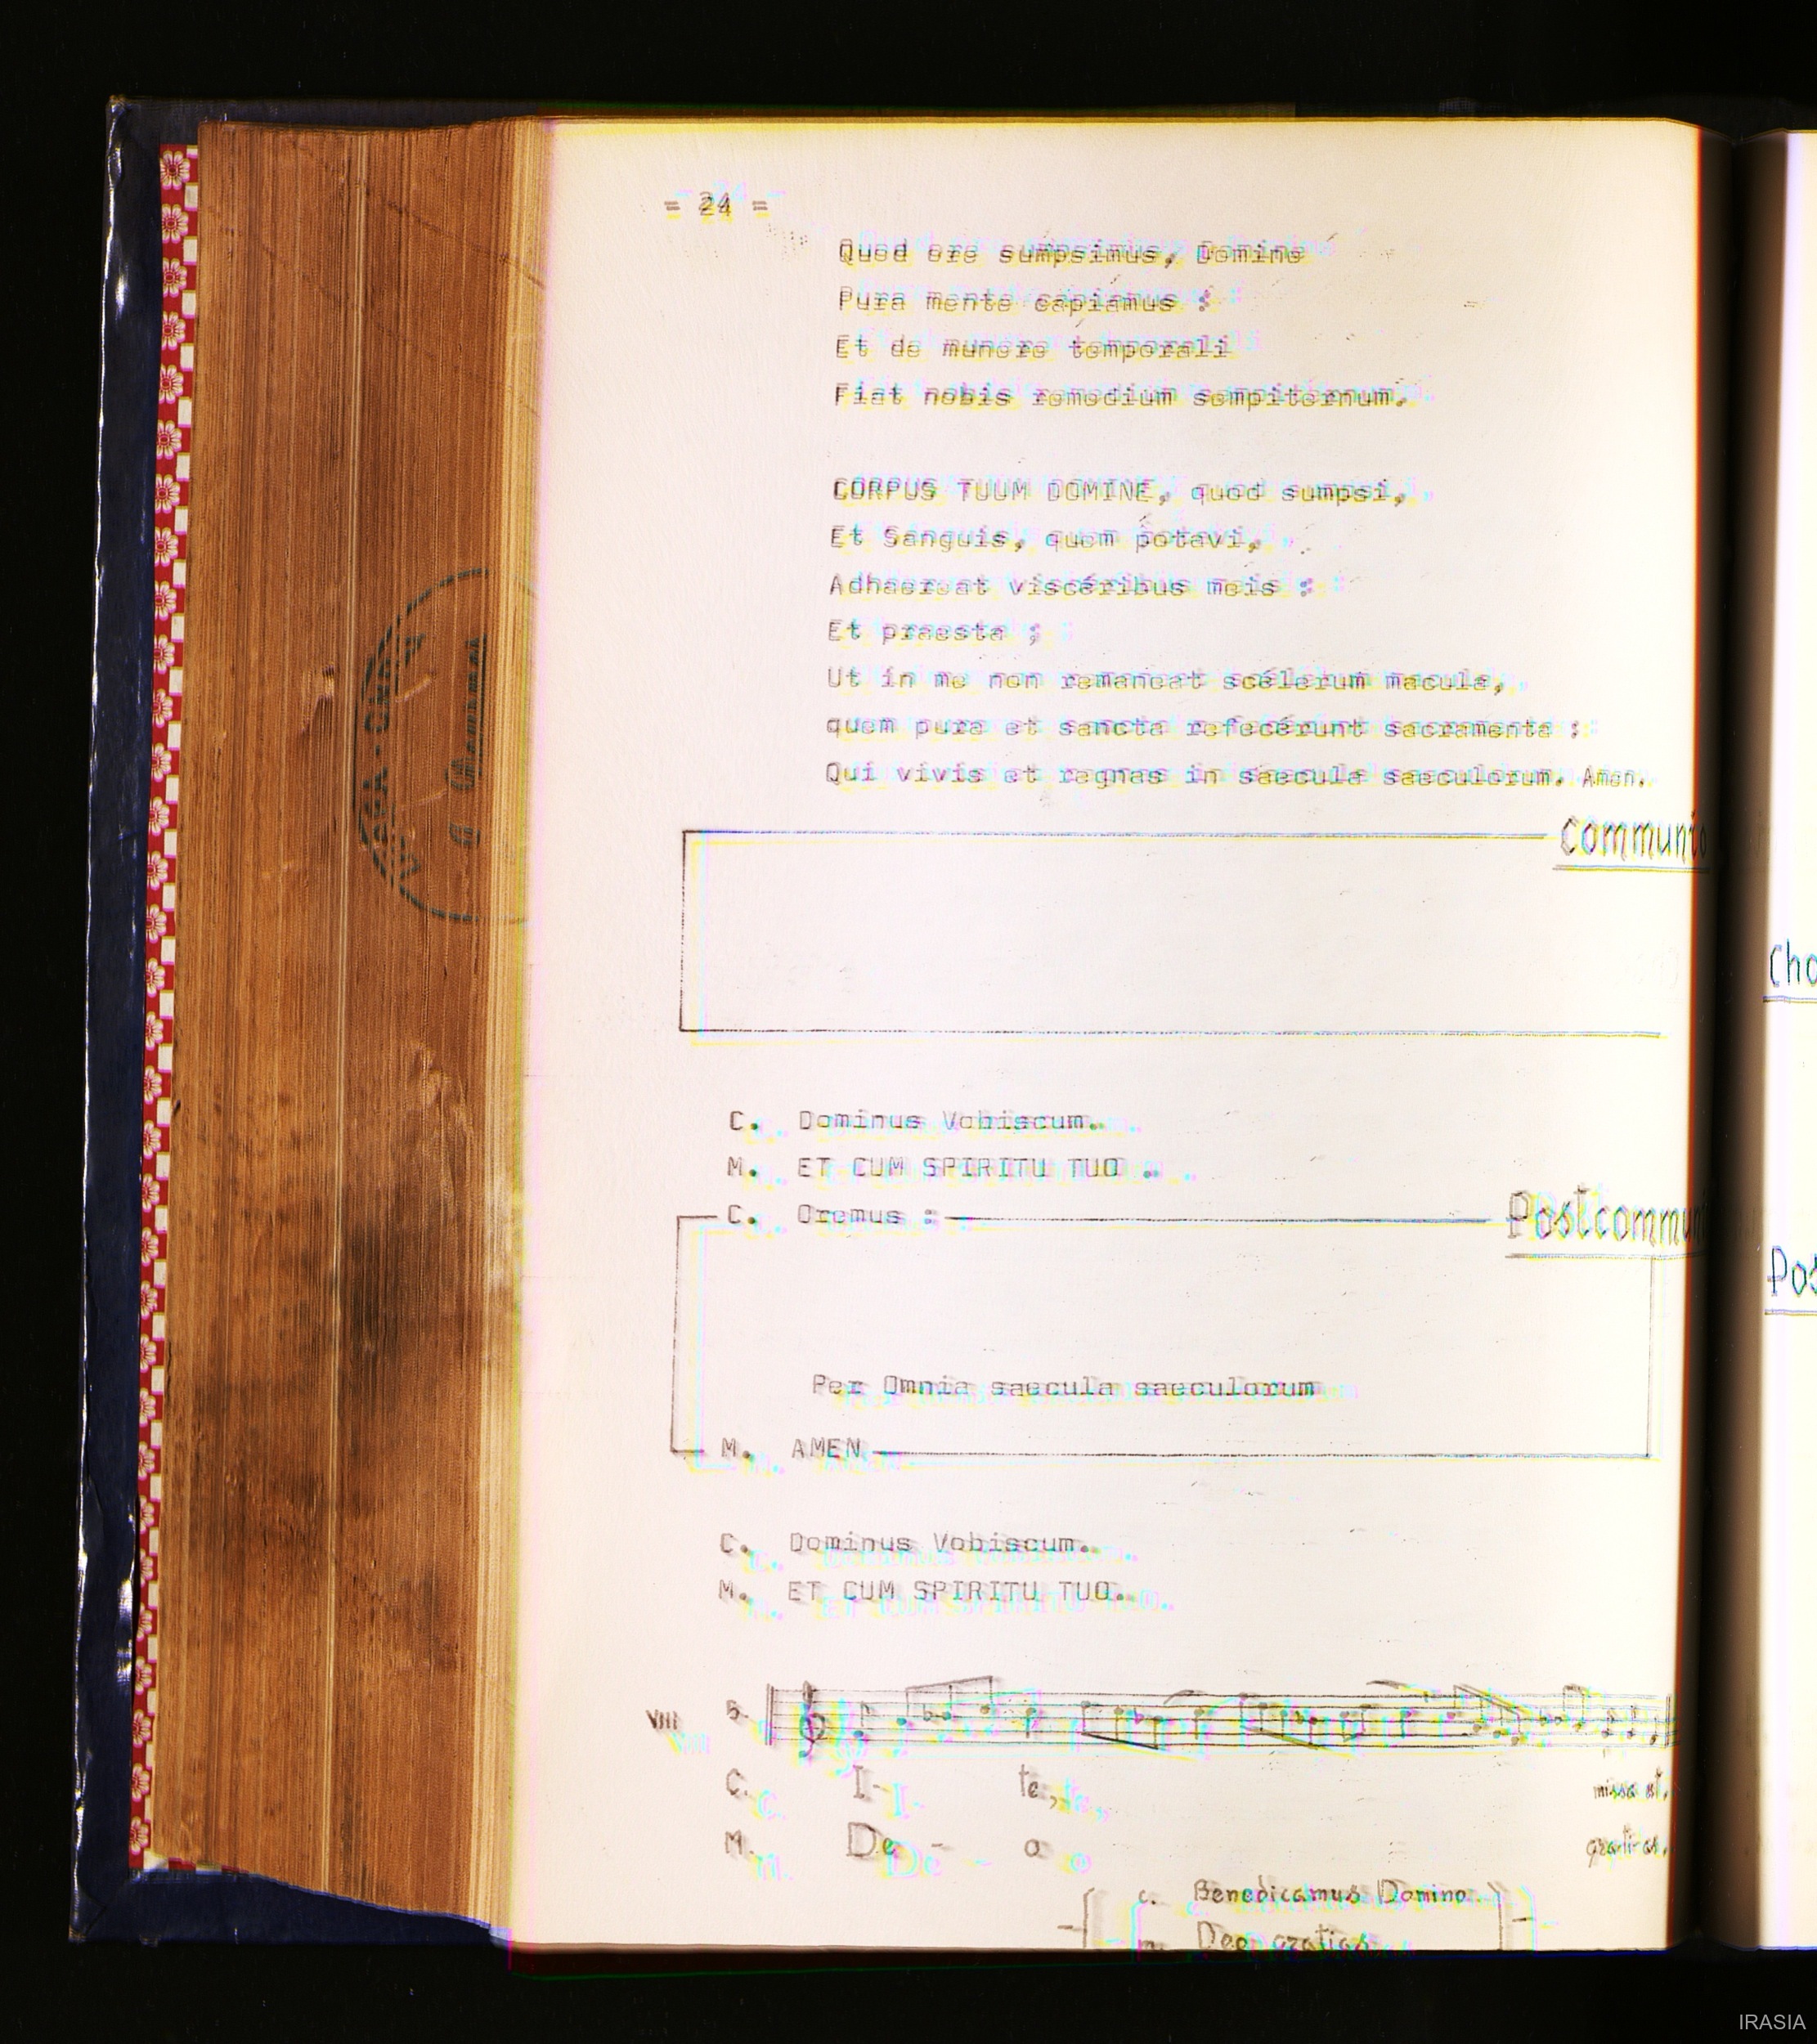 = 24 =
Quod ore sumpsimus, Domine
Pura mente capiamus :
Et de munere temporali
Fiat nobis remedium sempiternum.
CORPUS TUUM DOMINE, quod sumpsi,
Et Sanguis, quem potavi,
Adhaereat viscéribus meis :
Et praesta ;
Ut in me non remaneat scélerum macula,
quem pura et sancta refecérunt sacramenta :
Qui vivis et regnas in saecula saeculorum. Amen.
Communio
C. Dominus Vobiscum.
M. ET CUM SPIRITU TUO .
C. Oremus :
Postcommun
Per Omnia saecula saeculorum
M. AMEN
C. Dominus Vobiscum.
M. ET CUM SPIRITU TUO.
VIII 5-
C. I- te, missa est.
M. De - o gratias.
C. Benedicamus Domino
m. Deo gratias
Cho
Pos
IRASIA